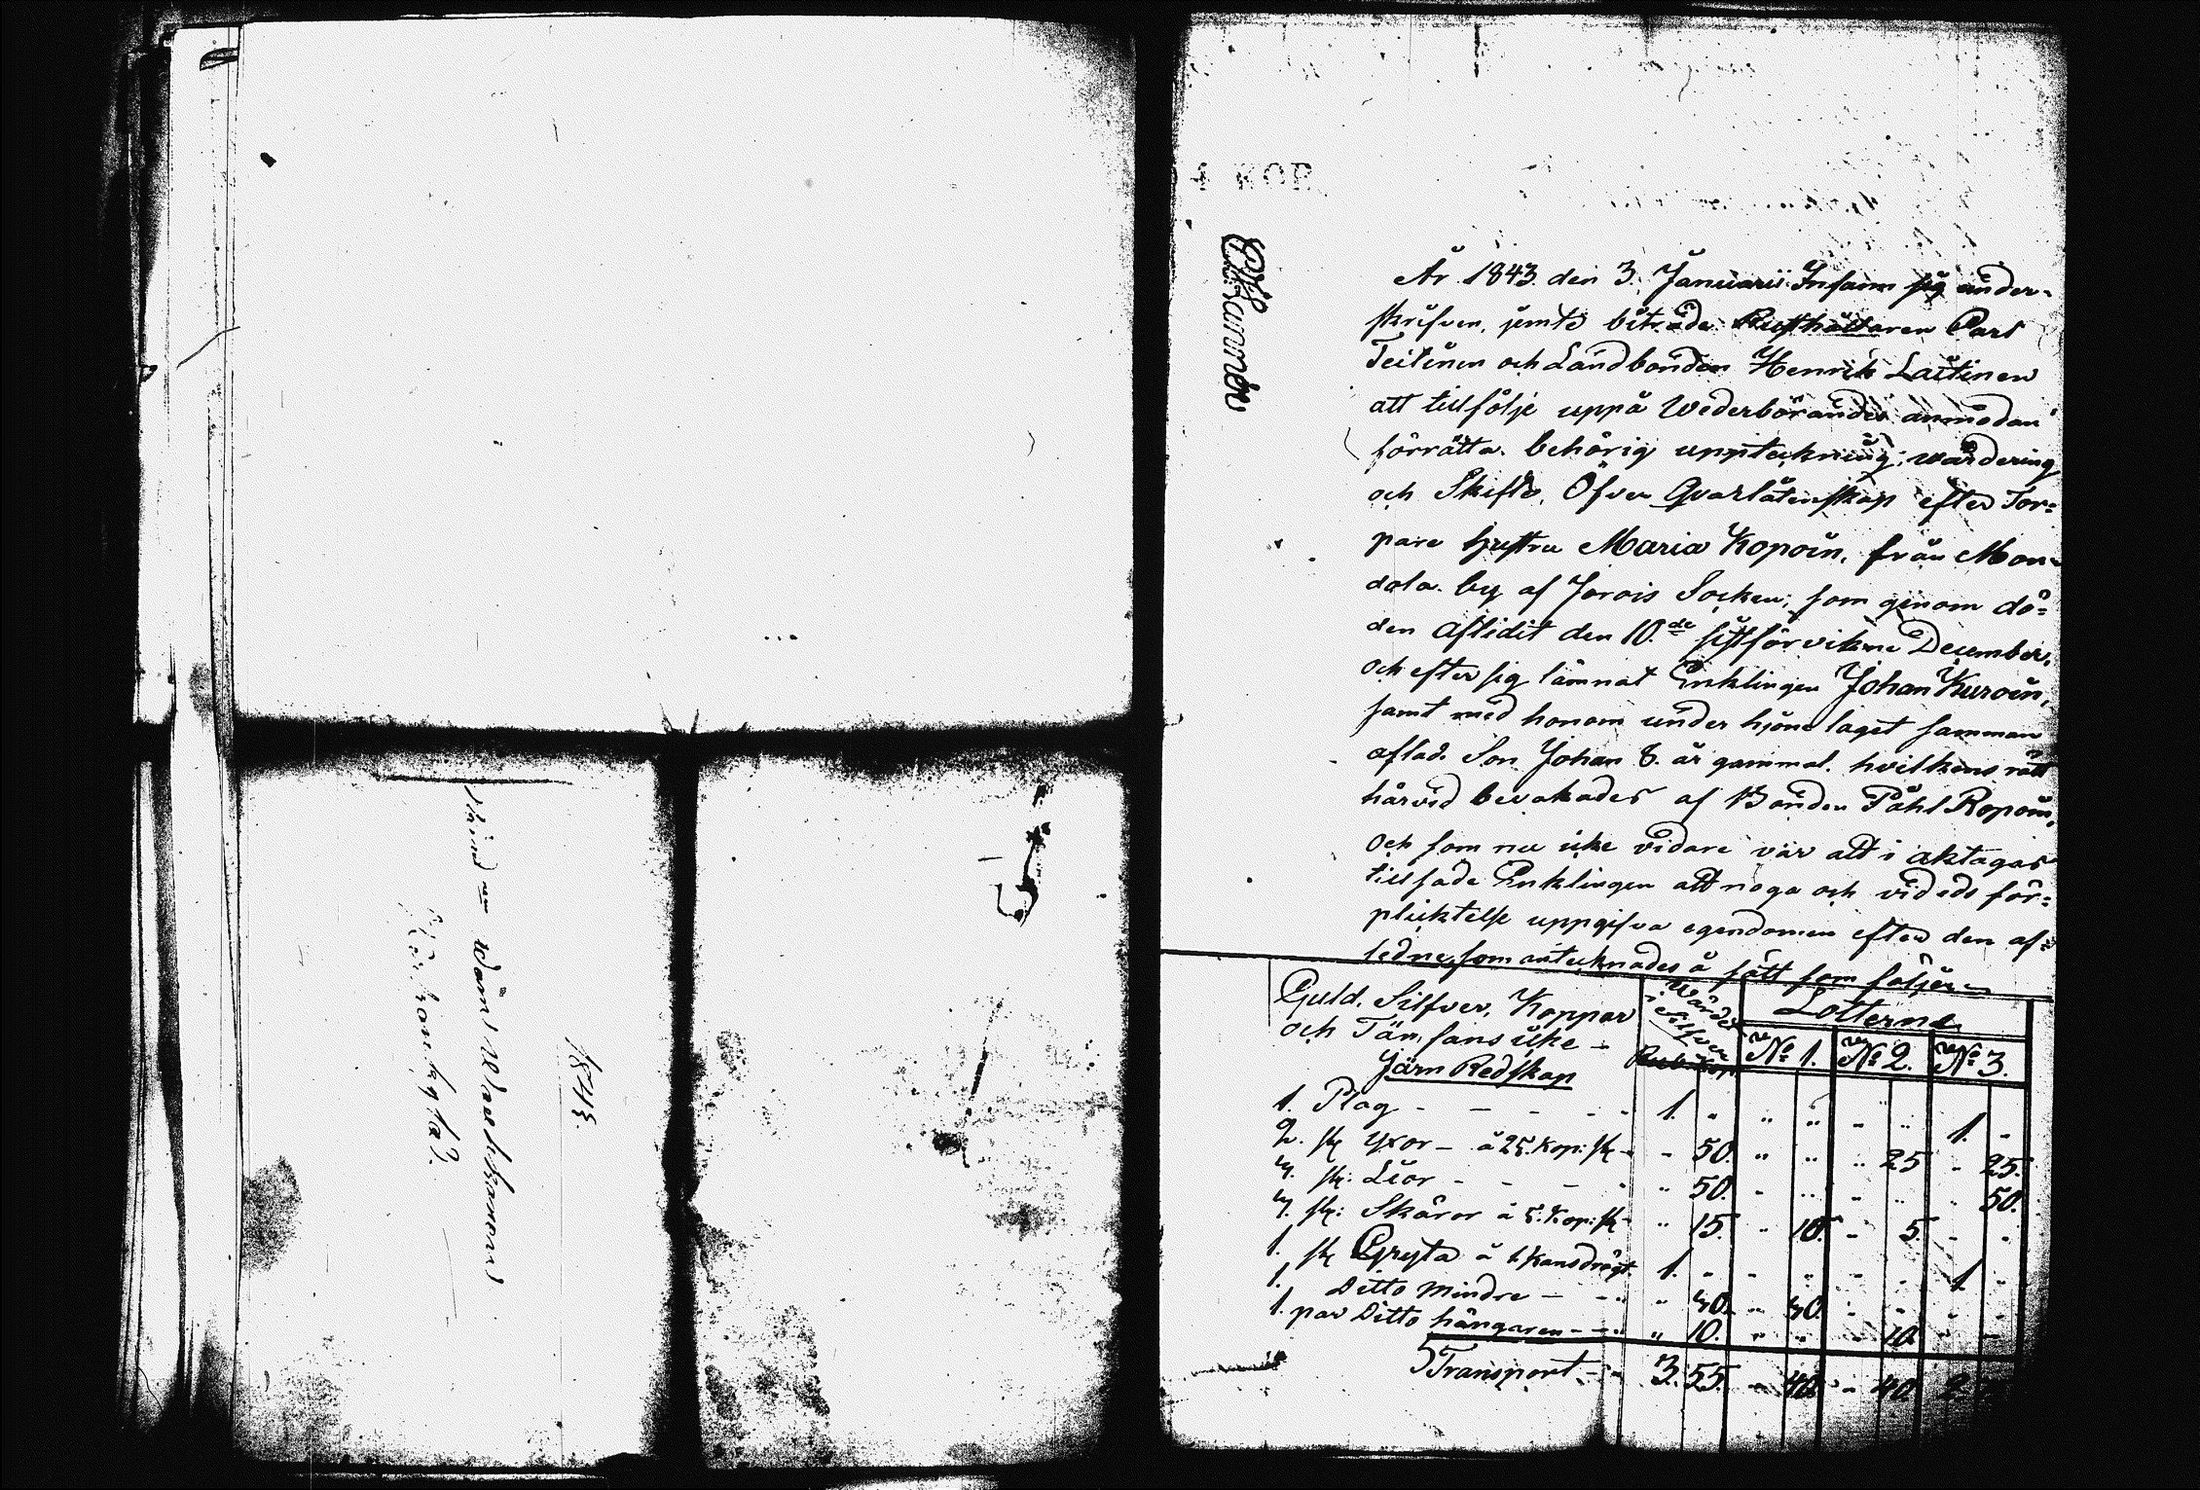 4 KOP
År 1843 den 3. Januarii Infann sig under-
skrifven, jemte biträde Rusthållaren Carl
Teitinen och Landbonden Henrik Laitinen
att tillfölje uppå Wederbörandes anmodan
förrätta behörig uppteckning, wärdering
och Skifte, Öfver Qvarlåtenskap efter Tor=
pare hustru Maria Kopoin, från Mon=
dola by af Jorois Socken, som genom dö=
den Aflidit den 10.de sistförvikne December,
och efter sig lämnat Enklingen Johan Kuroin,
samt med honom under hjonelaget samman
aflad. Son Johan 8. år gammal. hvilkens rätt
härvid bevakades af Bonden Påhl Kopoin,
Och som nu icke vidare var att i akttagas
tillsade Enklingen att noga och vid eds för=
pliktelse uppgifva egendomen efter den af=
ledne, som antecknades å sätt som följer
Guld, Silfver, Koppar
och Tän, fans icke –
Järn Redskap
Wärdet
i Silfver
Rub. Kop.
Lotterne
No 1. No 2. No 3.
1. Plog - - - - 1. " " " " " 1. "
2. st yxor – à 25. Kop: st - " 50. " " " 25 " 25.
st: Liar - - - - " 50. " " " " " 50.
st: Skäror à 5. Kop: st - " 15. " 10. " 5. " "
1. st Gryta à 1. Kansdrägt. 1. " " " " " 1. "
1. Ditto mindre – - - " 40. " 40. " " " "
1. par Ditto hängaren - - - " 10. " " " 10. " "
Transport - - 3. 55. " " 40
1843.